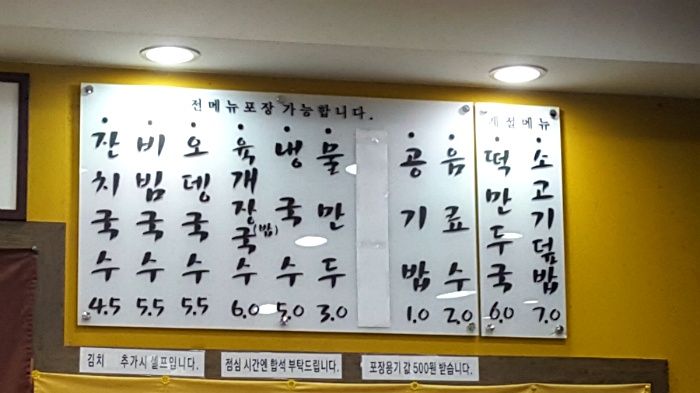 전메뉴포장 가능합니다.
잔치국수 4.5
비빔국수 5.5
오뎅국수 5.5
육개장국(밥)수 6.0
냉국수 5.0
물만두 3.0
공기밥 1.0
음료수 2.0
메뉴
떡만두국 6.0
소고기덮밥 7.0
김치 추가시 셀프입니다.
점심 시간엔 합석 부탁드립니다.
포장용기 값 500원 받습니다.